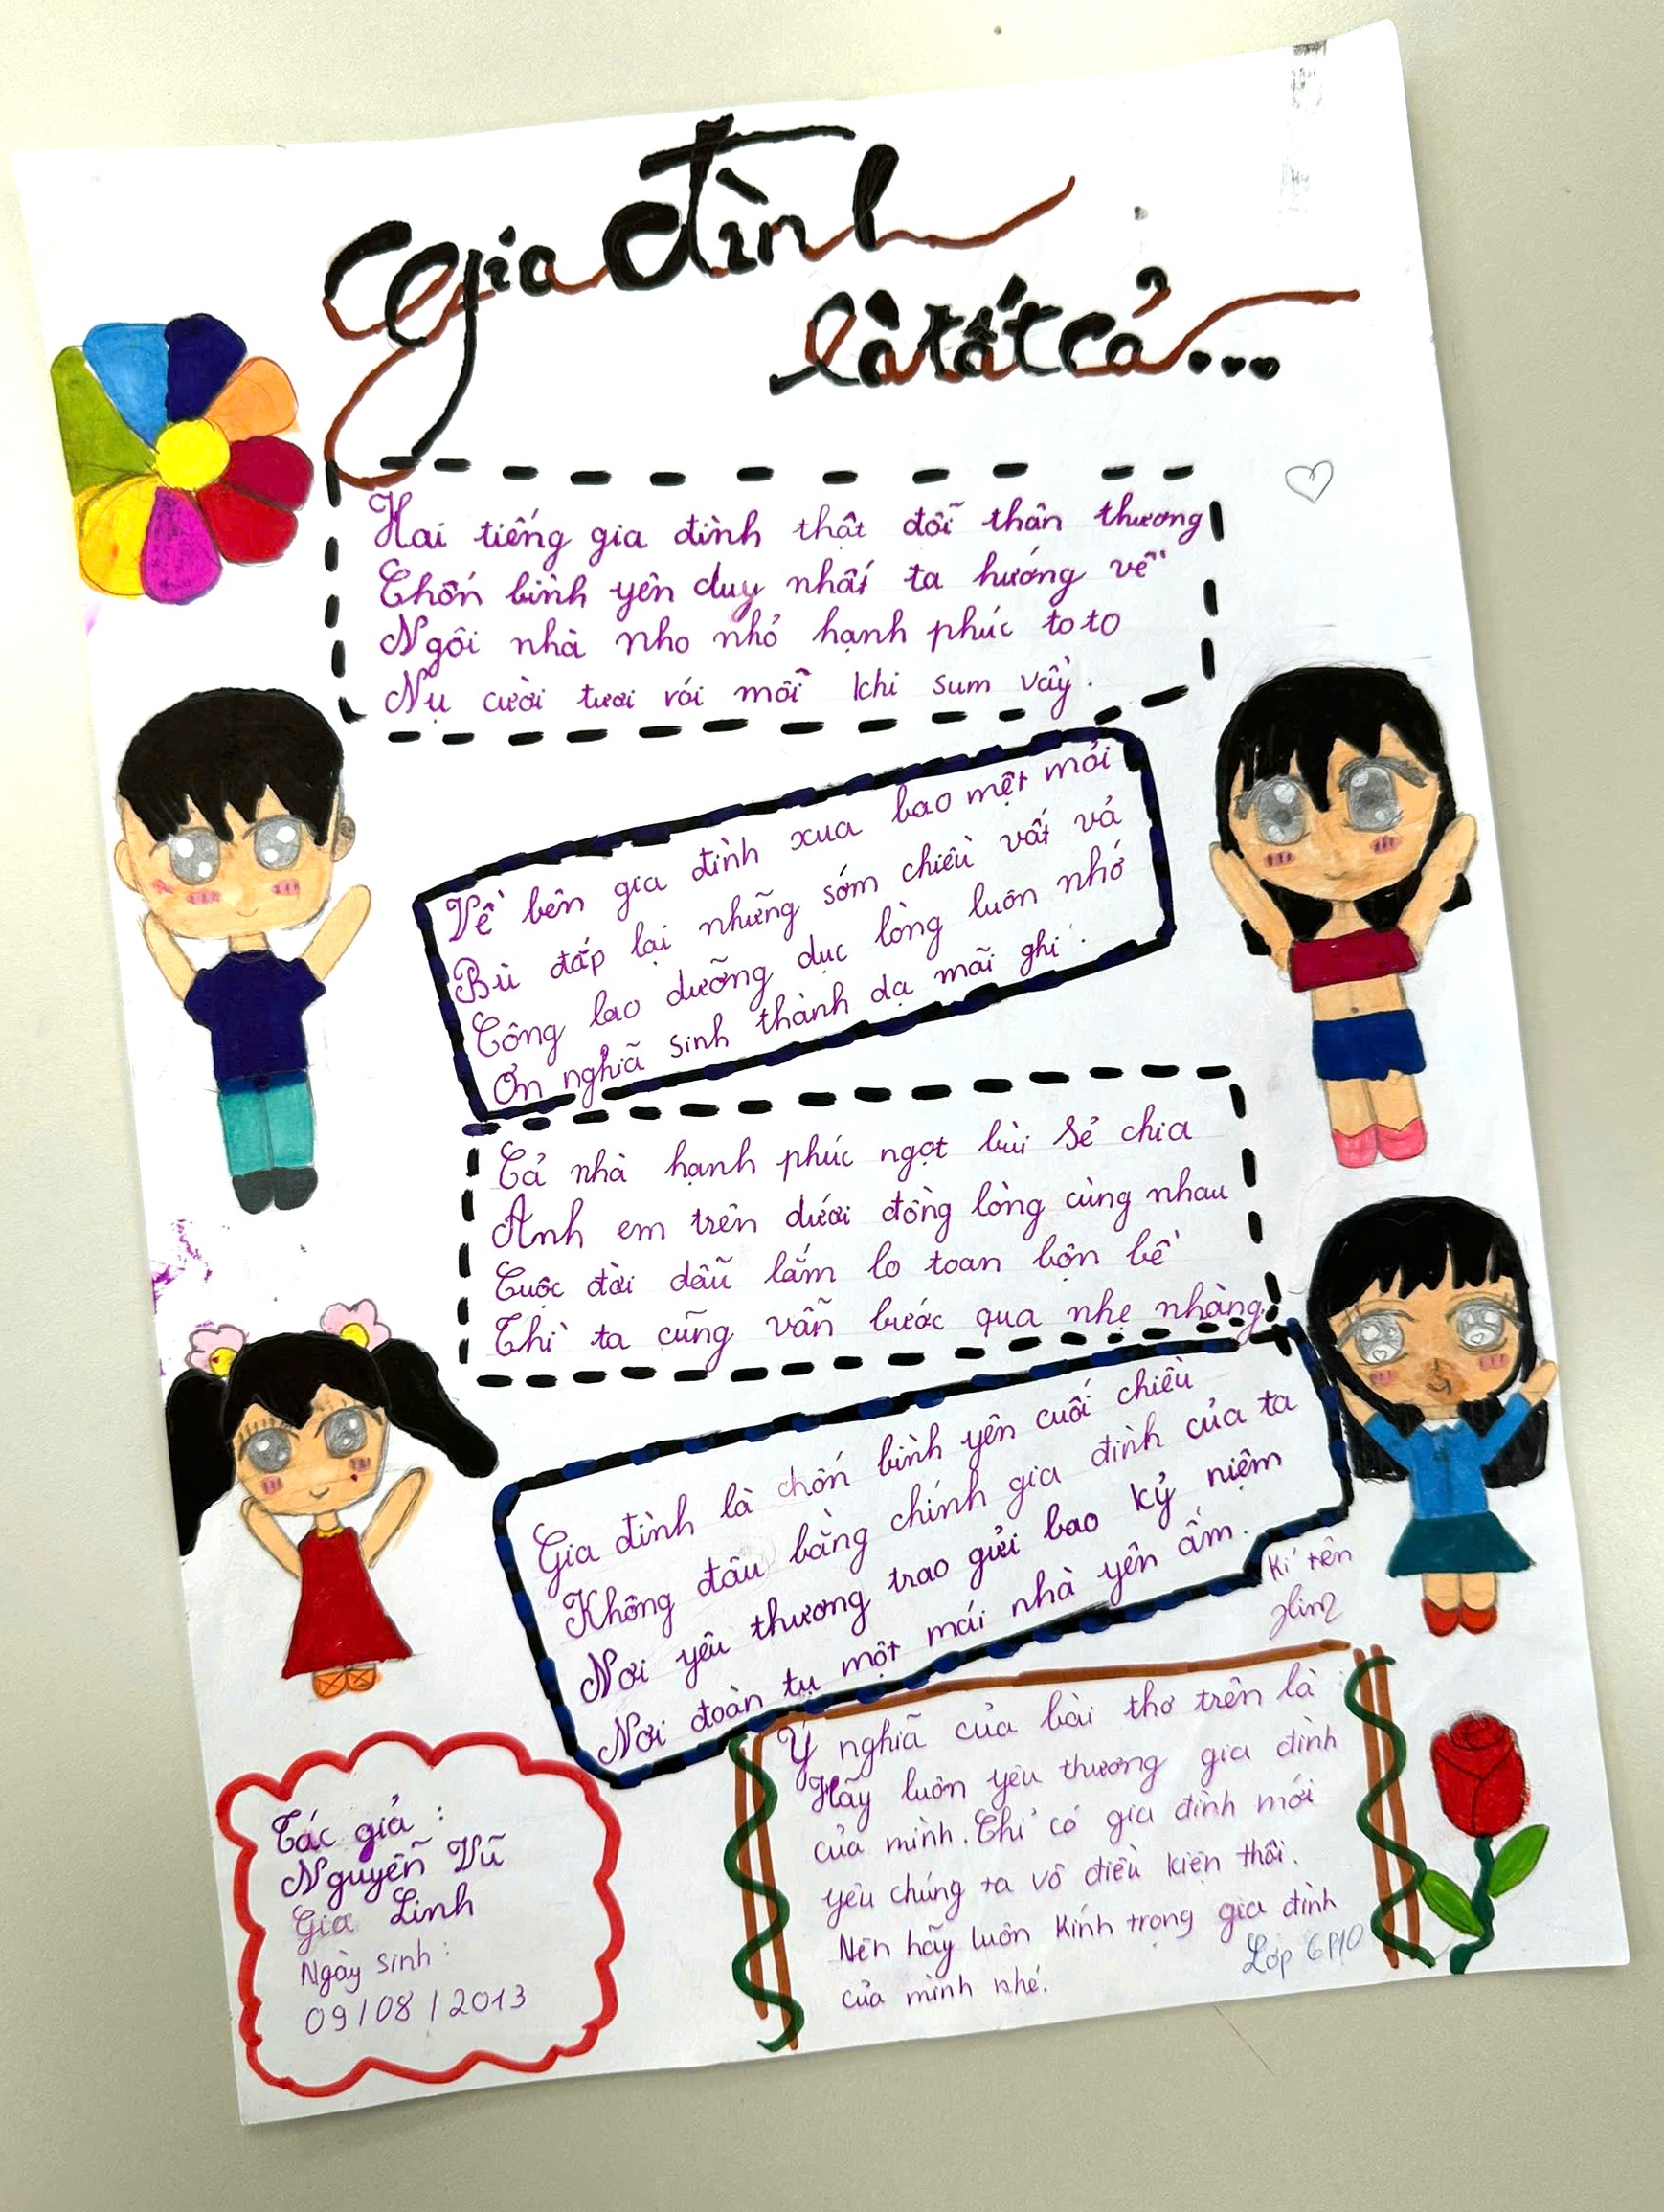 Gia đình
là tất cả...
Hai tiếng gia đình thật đỗi thân thương
Chốn bình yên duy nhất ta hướng về
Ngôi nhà nho nhỏ hạnh phúc to to
Nụ cười tươi rói mỗi khi sum vầy.
Về bên gia đình xua bao mệt mỏi
Bù đắp lại những sớm chiều vất vả
Công lao dưỡng dục lòng luôn nhớ
Ơn nghĩa sinh thành dạ mãi ghi.
Cả nhà hạnh phúc ngọt bùi sẻ chia
Anh em trên dưới đồng lòng cùng nhau
Cuộc đời dẫu lắm lo toan bộn bề
Thì ta cũng vẫn bước qua nhẹ nhàng.
Gia đình là chốn bình yên cuối chiều
Không đâu bằng chính gia đình của ta
Nơi yêu thương trao gửi bao kỷ niệm
Nơi đoàn tụ một mái nhà yên ấm.
Kí tên
Tác giả:
Nguyễn Vũ
Gia Linh
Ngày sinh:
09/08/2013
Ý nghĩa của bài thơ trên là:
Hãy luôn yêu thương gia đình
của mình. Chỉ có gia đình mới
yêu chúng ta vô điều kiện thôi.
Nên hãy luôn kính trọng gia đình
của mình nhé.
Lớp